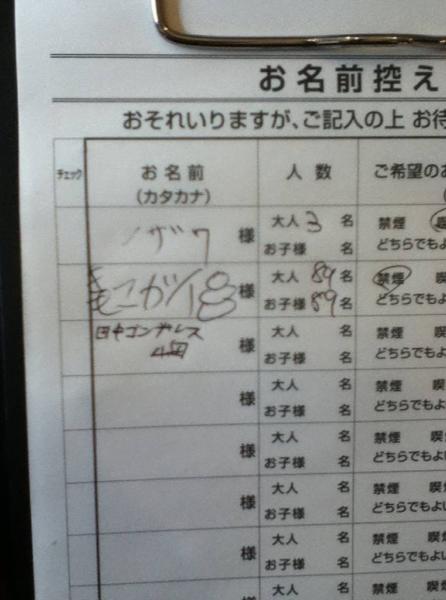 お名前控え
おそれいりますが、ご記入の上 お待
チェック お名前 人数 ご希望のお
(カタカナ)
ノザワ 様 大人 3 名 禁煙
お子様 名 どちらでもよ
様 大人 89 名 禁煙 喫
お子様 89 名 どちらでもよ
田中ゴンザレス 様 大人 名 禁煙 喫
お子様 名 どちらでもよ
様 大人 名 禁煙 喫
お子様 名 どちらでもよ
様 大人 名 禁煙 喫
お子様 名 どちらでもよい
様 大人 名 禁煙 喫煙
お子様 名 どちらでもよい
様 大人 名 禁煙 喫煙
お子様 名 どちらでもよい
大人 名 禁煙 喫煙